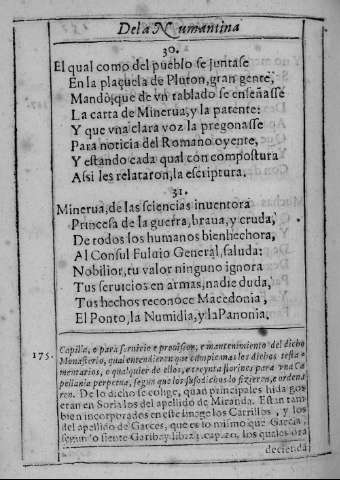 De la Numantina
30.
El qual como del pueblo se juntase
En la plaçuela de Pluton, gran gente,
Mandò, que de vn tablado se enseñasse
La carta de Minerua, y la patente:
Y que vna clara voz la pregonasse
Para noticia del Romano oyente,
Y estando cada qual con compostura
Assi les relataron, la escriptura.
31.
Minerua, de las sciencias inuentora
Princesa de la guerra, braua, y cruda,
De todos los humanos bienhechora,
Al Consul Fuluio General, saluda:
Nobilior, tu valor ninguno ignora
Tus seruicios en armas, nadie duda,
Tus hechos reconoce Macedonia,
El Ponto, la Numidia, y la Panonia.
Capilla, o para seruicio e prouision, e mantenimiento del dicho
175. Monasterio, qual entendieren que cumple mas los dichos testa-
mentarios, o qualquier de ellos, e treynta florines para vna Ca
pellania perpetua, segun que los susodichos lo fizieren, e ordena
ren. De lo dicho se colige, quan principales hidalgos
eran en Soria los del apellido de Miranda. Estan tam
bien incorporados en este linage los Carrillos, y los
del apellido de Garces, que es lo mismo que Garcia,
segun lo siente Garibay lib. 23. cap. 20. los quales ora
decienda